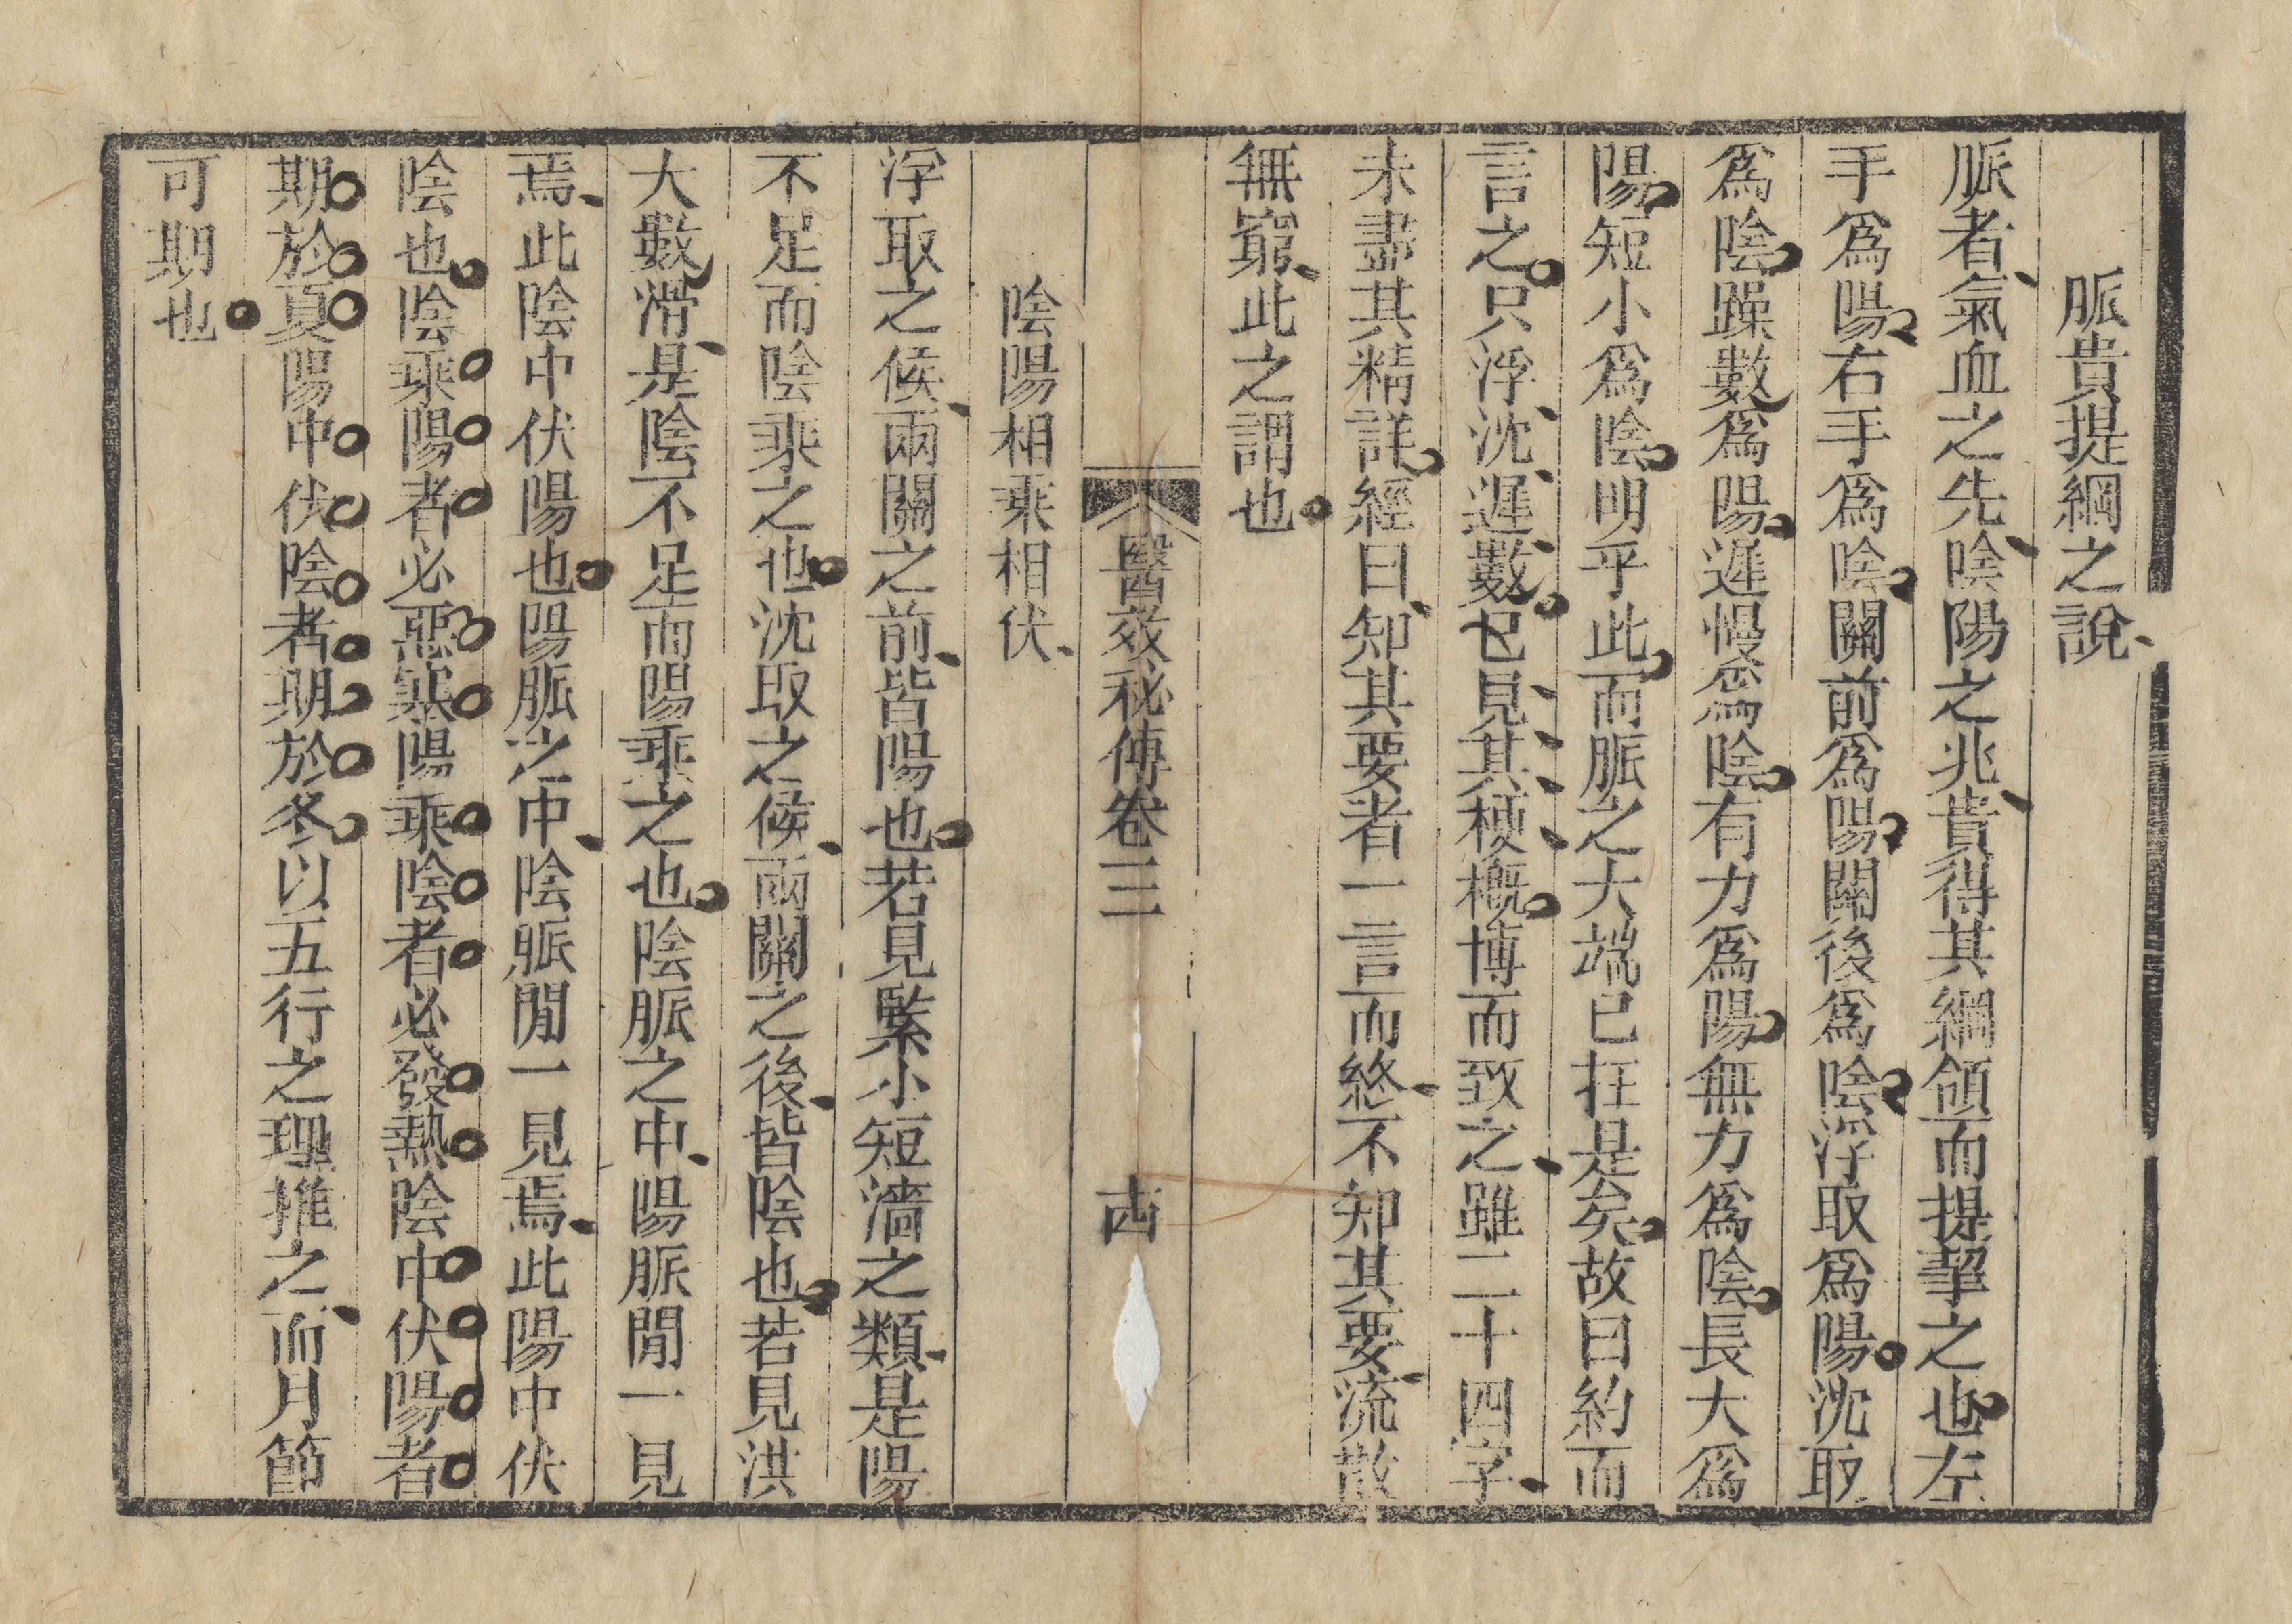 脈貴提綱之說
脈者氣血之先陰陽之兆貴得其綱領而提挈之也左
手爲陽右手爲陰關前爲陽關後爲陰浮取爲陽沈取
爲陰躁數爲陽遲慢爲陰有力爲陽無力爲陰長大爲
陽短小爲陰明乎此而脈之大端已在是矣故曰約而
言之只浮沈遲數已見其梗概博而致之雖二十四字
未盡其精詳經曰知其要者一言而終不知其要流散
無窮此之謂也
醫效秘傳卷三
十四
陰陽相乘相伏
浮取之候兩關之前皆陽也若見緊小短濇之類是陽
不足而陰乘之也沈取之候兩關之後皆陰也若見洪
大數滑是陰不足而陽乘之也陰脈之中陽脈閒一見
焉此陰中伏陽也陽脈之中陰脈閒一見焉此陽中伏
陰也陰乘陽者必惡寒陽乘陰者必發熱陰中伏陽者
期於夏陽中伏陰者期於冬以五行之理推之而月節
可期也